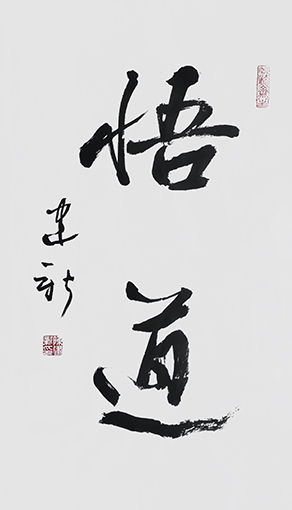 悟道
建新